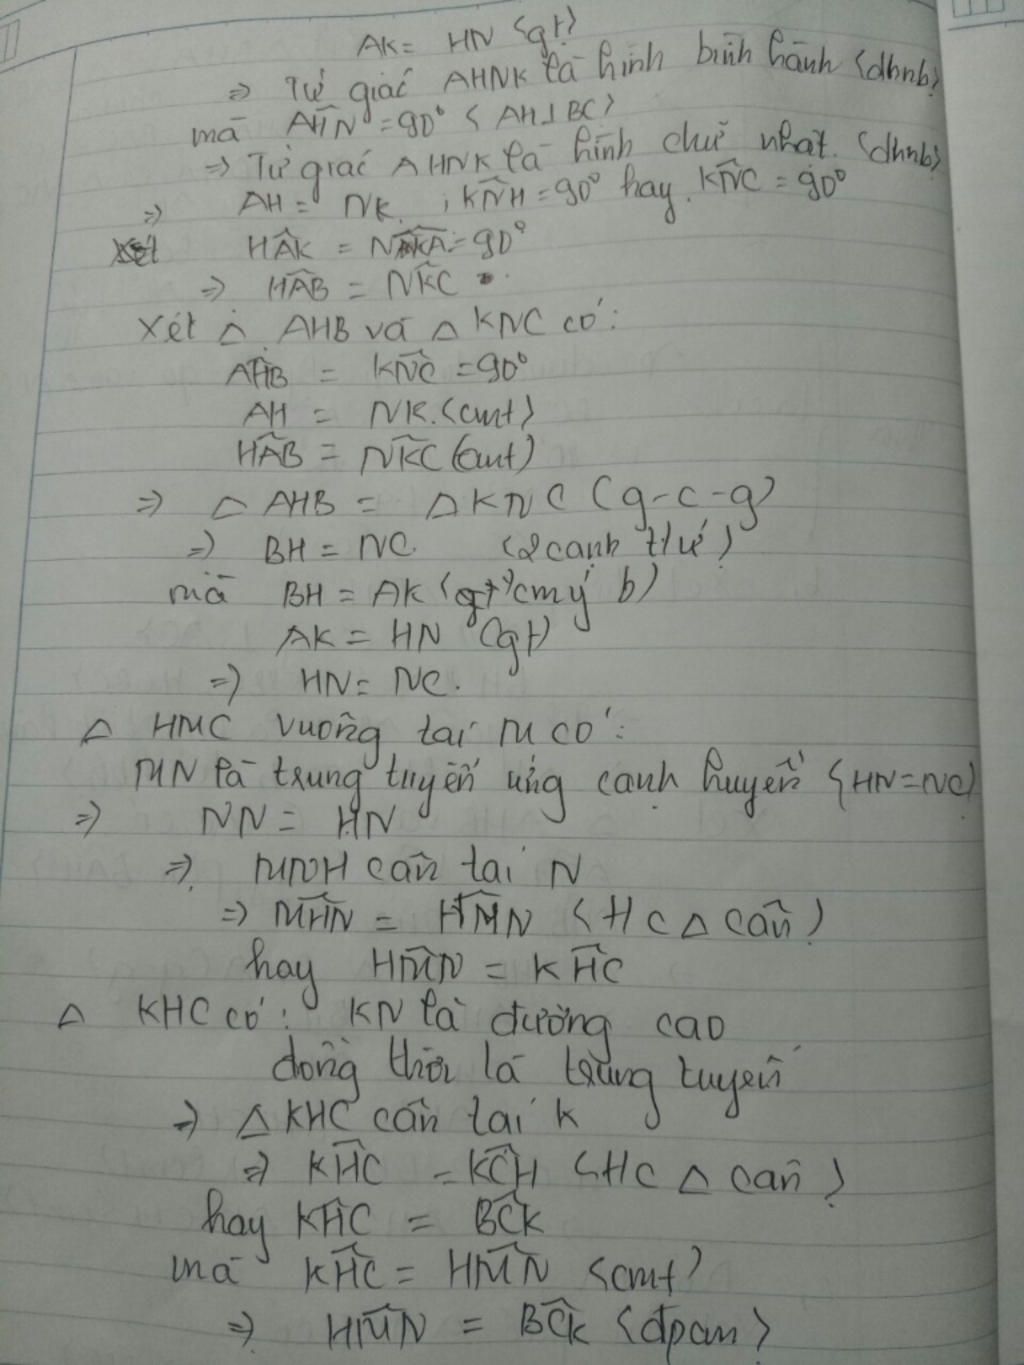 AK = HN (gt)
=> Tứ giác AHNK là hình bình hành (dhnb)
mà AĤN = 90° (AH⊥BC)
=> Tứ giác AHNK là hình chữ nhật. (dhnb)
=> AH = NK. ; KN̂H = 90° hay KN̂C = 90°
HÂK = NK̂A = 90°
=> HÂB = NK̂C
Xét △ AHB và △ KNC có:
AĤB = KN̂C = 90°
AH = NK. (cmt)
HÂB = NK̂C (cmt)
=> △ AHB = △ KNC (g-c-g)
=> BH = NC. (2 cạnh t/ứ)
mà BH = AK (cm ý b)
AK = HN (gt)
=> HN = NC.
△ HMC vuông tại M có:
MN là trung tuyến ứng cạnh huyền (HN = NC)
=> NN = HN
=> MNH cân tại N
=> MĤN = HM̂N (HC △ cân)
hay HM̂N = KĤC
△ KHC có: KN là đường cao
đồng thời là trung tuyến
=> △ KHC cân tại K
=> KĤC = KĈH (HC △ cân)
hay KĤC = BĈK
mà KĤC = HM̂N (cmt)
=> HM̂N = BĈK (đpcm)